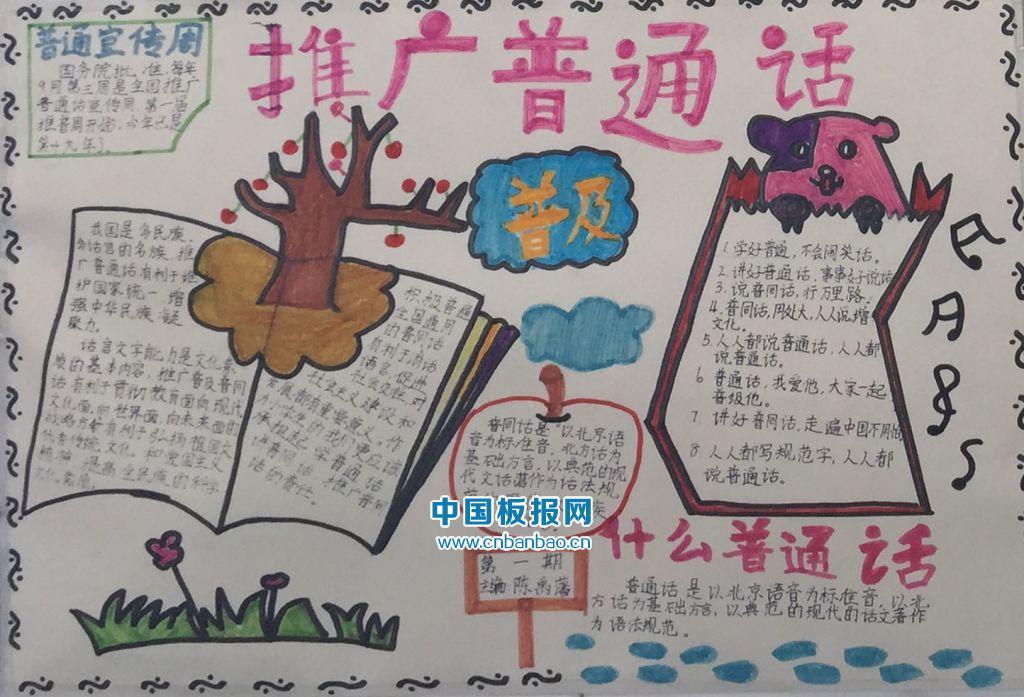 推广普通话
普通宣传周
国务院批准,每年
9月第三周是全国推广
普通话宣传周,第一届
推普周开始,今年已是
第十九年了
普及
我国是多民族、
多话言的名族,推
广普通话有利于维
护国家统一,增
强中华民族凝
聚力。
话言文字能力是文化素
质的基本内容,推广普及普同
话有利于贯彻教育面向现代
文化,面向世界面,向未来面的
战略方针有利于弘扬祖国文
优秀传统文化和爱国主义
精神,提高全民族的科学
积极普通
全国通用
的普同话
有利于消话
语言,促进
社会交往,对
社会主义建设和
发展都有重要意义。作
为小学生的我们更应该
承担起学普通话
讲普同话,推广普同
话的责任。
1.学好普通,不会闹笑话。
2.讲好普通话,事事好说话
3.说普同话,行万里路。
4.普同话,用处大,人人说,增
文化。
5.人人都说普通话,人人都
说普通话。
6 普通话,我爱他,大家一起
普级他。
7 讲好普同话,走遍中国不用怕
8.人人都写规范字,人人都
说普通话。
普同话是“以北京语
音为标准音,北方话为
基础方言,以典范的现
代文话著作为话法规
中国板报网
www.cnbanbao.cn
第一期
主编 陈禹蒲
什么普通话
普通话是以北京语音为标准音,以北
方话为基础方言,以典范的现代的话文著作
为语法规范。